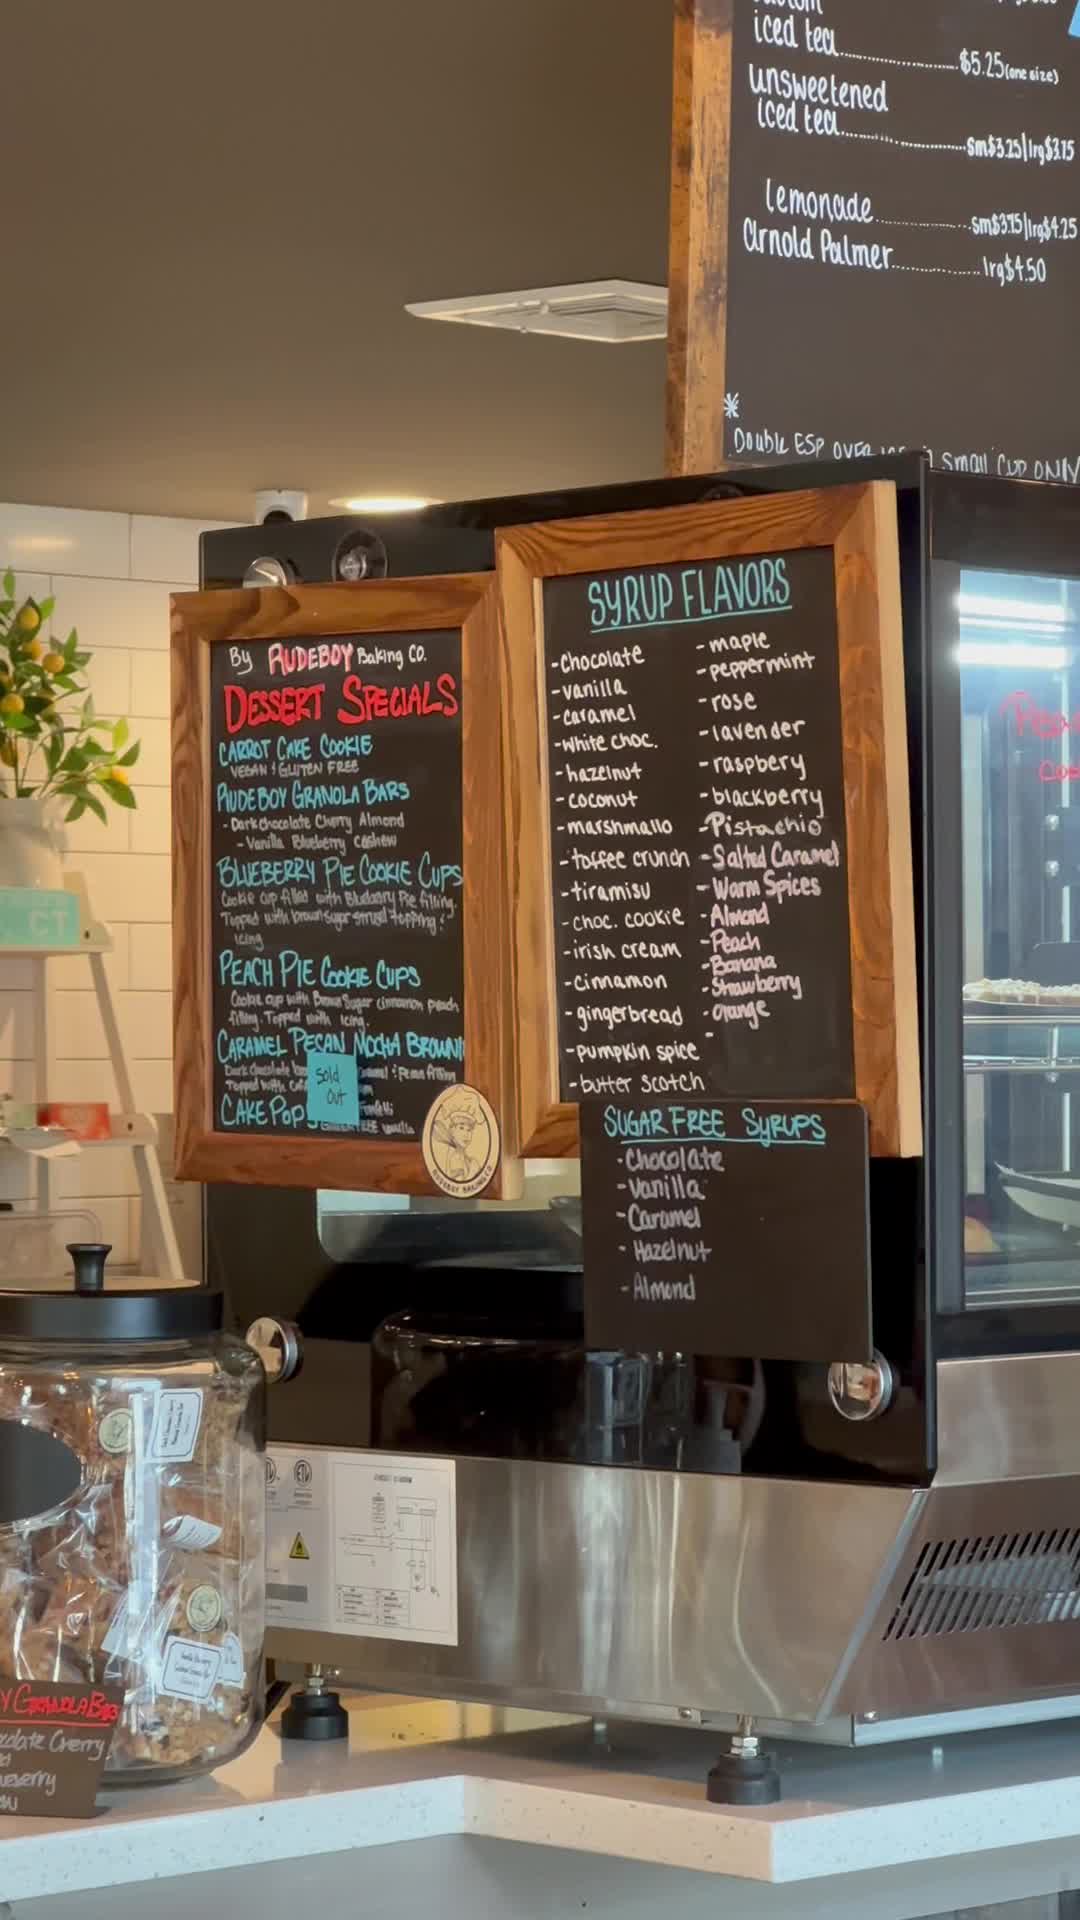 iced tea
$5.25 (one size)
unsweetened
iced tea
sm$3.25|lrg$3.75
Lemonade
sm$3.75|lrg$4.25
Arnold Palmer
lrg$4.50
*
Double ESP OVER small CUP ONLY
By RUDEBOY Baking Co.
DESSERT SPECIALS
CARROT CAKE COOKIE
VEGAN & GLUTEN FREE
RUDEBOY GRANOLA BARS
- Dark chocolate Cherry Almond
- Vanilla Blueberry Cashew
BLUEBERRY PIE COOKIE CUPS
Cookie cup filled with Blueberry Pie filling.
Topped with brown sugar strusel topping &
icing
PEACH PIE COOKIE CUPS
Cookie cup with Brown Sugar cinnamon peach
filling. Topped with icing.
CARAMEL PECAN MOCHA BROWNI
Dark chocolate Caramel & Pecan filling
Topped with
Sold
Out
CAKE POPS
vanilla
RUDEBOY BAKING CO
SYRUP FLAVORS
-chocolate
-vanilla
-caramel
-white choc.
-hazelnut
-coconut
-marshmallo
-toffee crunch
-tiramisu
-choc. cookie
-irish cream
-cinnamon
-gingerbread
-pumpkin spice
-butter scotch
-maple
-peppermint
-rose
-lavender
-raspbery
-blackberry
-Pistachio
-Salted Caramel
-Warm Spices
-Almond
-Peach
-Banana
-Strawberry
-Orange
-
SUGAR FREE SYRUPS
-Chocolate
-Vanilla
-Caramel
-Hazelnut
-Almond
CT
Y GRANOLA BARS
Cherry